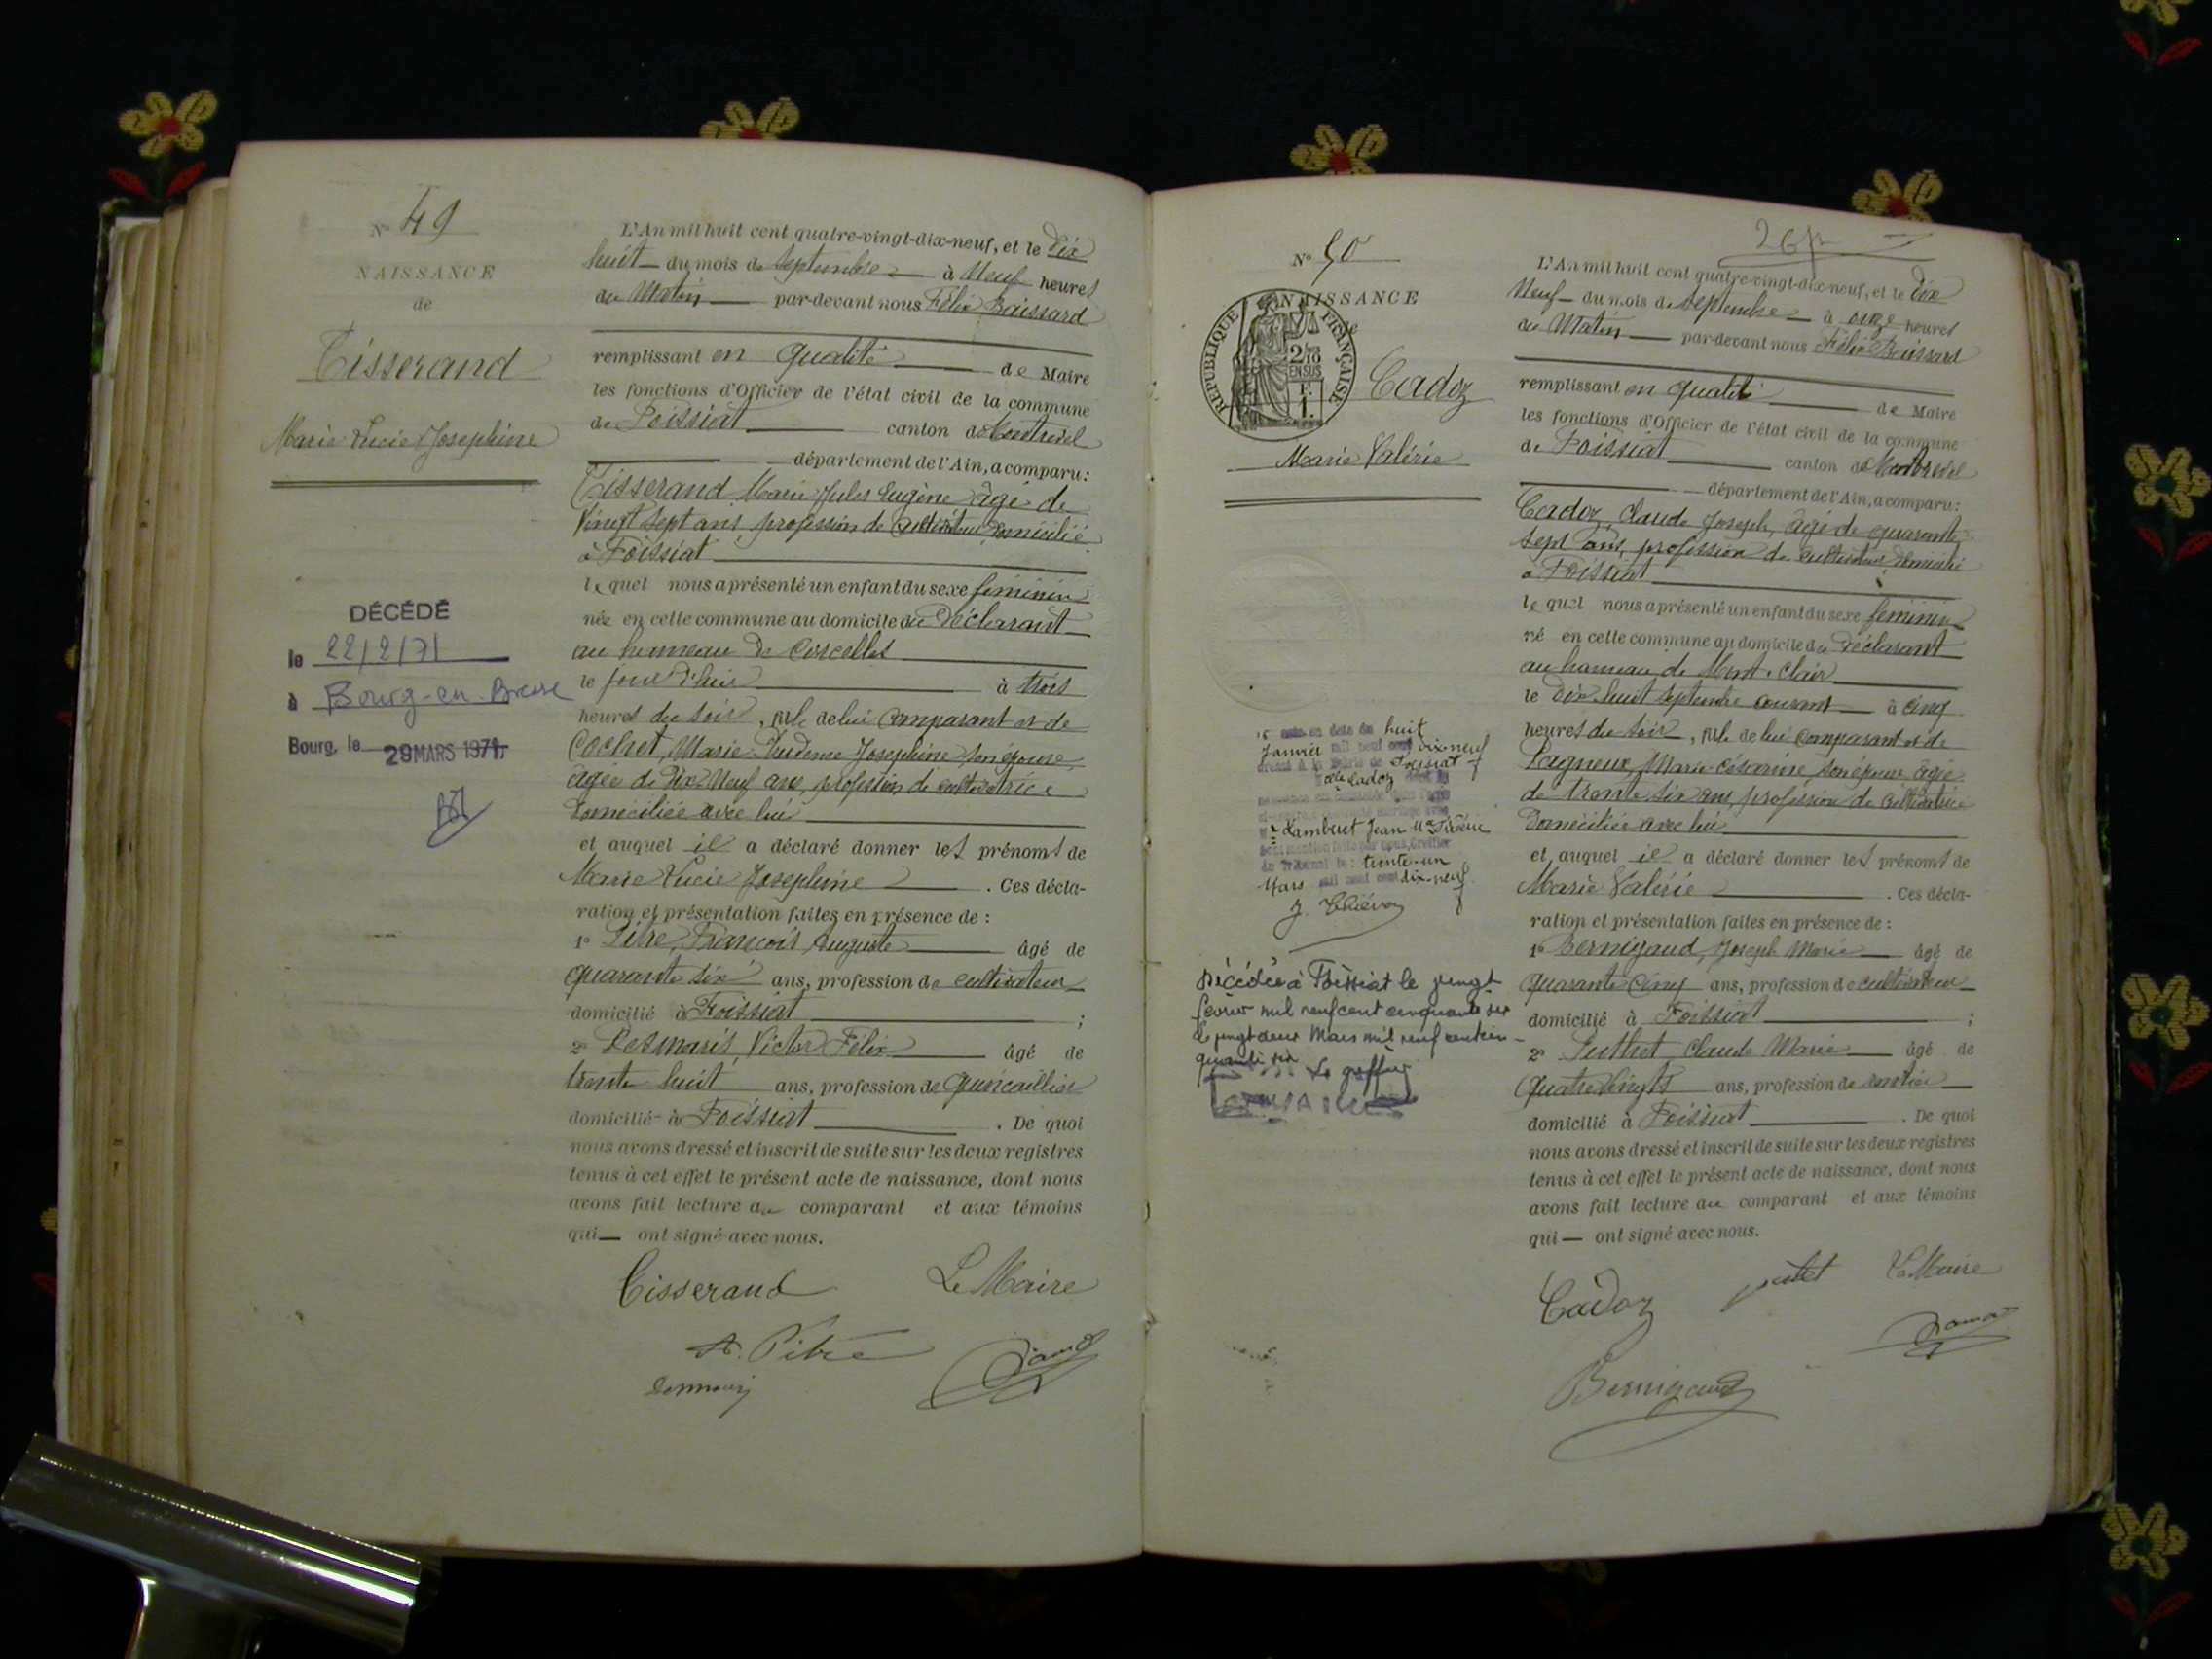 N° 49
NAISSANCE
de
Tisserand
Marie Lucie Josephine
DÉCÉDÉ
le 22/2/71
à Bourg-en-Bresse
Bourg, le 29 MARS 1971
L'An mil huit cent quatre-vingt-dix-neuf, et le Dix
huit du mois de Septembre à Neuf heures
du Matin par-devant nous Félix
remplissant en qualité de Maire
les fonctions d'Officier de l'état civil de la commune
de Foissiat canton de Montrevel
département de l'Ain, a comparu:
Tisserand Marie Jules Eugène âgé de
Vingt Sept ans, profession de cultivateur domicilié
à Foissiat
lequel nous a présenté un enfant du sexe féminin
née en cette commune au domicile du Déclarant
au hameau de Corcelles
le jour d'hier à trois
heures du soir, fille de lui comparant et de
Cochet, Marie Prudence Josephine son épouse,
âgée de Dix-Neuf ans, profession de cultivatrice
domiciliée avec lui
et auquel il a déclaré donner les prénoms de
Marie Lucie Josephine . Ces décla-
ration et présentation faites en présence de :
1° Pitre, François Auguste âgé de
quarante six ans, profession de cultivateur
domicilié à Foissiat ;
2° Desmaris, Victor Félix âgé de
trente huit ans, profession de Quincaillier
domicilié à Foissiat . De quoi
nous avons dressé et inscrit de suite sur les deux registres
tenus à cet effet le présent acte de naissance, dont nous
avons fait lecture au comparant et aux témoins
qui ont signé avec nous.
Tisserand Le Maire
A. Pitre
N° 50
NAISSANCE
de
RÉPUBLIQUE FRANÇAISE
2/10
EN SUS
F.
1.
Cadoz
Marie Valérie
en date du huit
Janvier mil neuf cent dix-neuf
dressé à la Mairie de Foissiat
Cadoz
Lamberet Jean
du Tribunal le: trente-un
Mars mil neuf cent dix-neuf
Décédée à Foissiat le vingt
février mil neuf cent cinquante six
le vingt deux Mars mil neuf cent cin-
quante six Le greffier
L'An mil huit cent quatre-vingt-dix-neuf, et le Dix
Neuf du mois de Septembre à onze heures
du Matin par-devant nous Félix
remplissant en qualité de Maire
les fonctions d'Officier de l'état civil de la commune
de Foissiat canton de Montrevel
département de l'Ain, a comparu:
Cadoz, Claude Joseph, âgé de quarante
sept ans, profession de cultivateur domicilié
à Foissiat
lequel nous a présenté un enfant du sexe féminin
né en cette commune au domicile du Déclarant
au hameau de Mont-Clair
le dix huit Septembre courant à cinq
heures du soir, fille de lui comparant et de
Pagneux, Marie Césarine, son épouse âgée
de trente six ans, profession de cultivatrice
domiciliée avec lui
et auquel il a déclaré donner les prénoms de
Marie Valérie . Ces décla-
ration et présentation faites en présence de :
1° Bernigaud, Joseph Marie âgé de
quarante cinq ans, profession de cultivateur
domicilié à Foissiat ;
2° Claude Marie âgé de
Quatre Vingts ans, profession de rentier
domicilié à Foissiat . De quoi
nous avons dressé et inscrit de suite sur les deux registres
tenus à cet effet le présent acte de naissance, dont nous
avons fait lecture au comparant et aux témoins
qui ont signé avec nous.
Cadoz Le Maire
Bernigaud